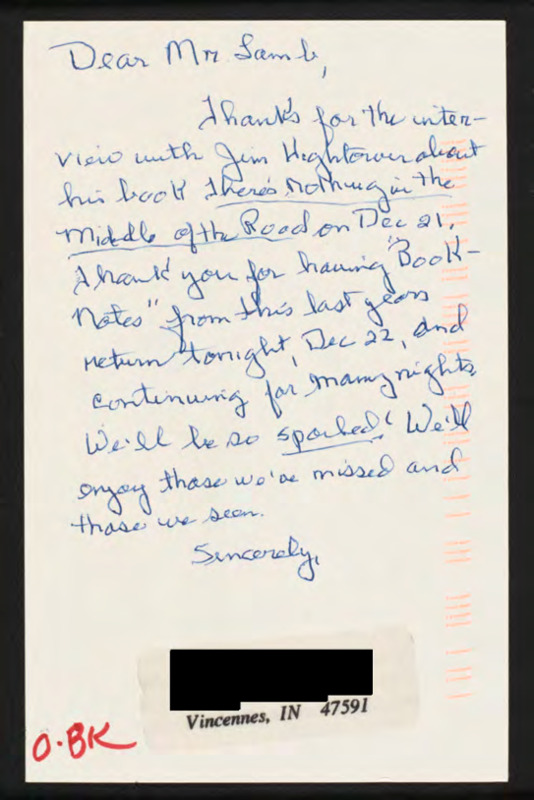 Dear Mr Lamb,
Thanks for the inter-
view with Jim Hightower about
his book There's Nothing in the
Middle of the Road on Dec 21.
Thank you for having "Book-
Notes" from this last years
return tonight, Dec 22, and
continuing for many nights.
We'll be so spoiled! We'll
enjoy those we've missed and
those we seen.
Sincerely,
Vincennes, IN 47591
O·BK